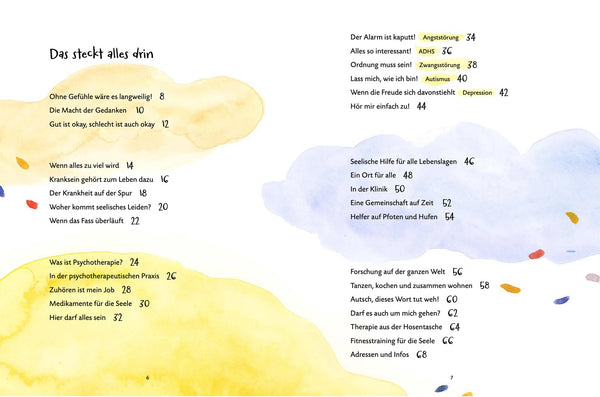 Das steckt alles drin
Ohne Gefühle wäre es langweilig! 8
Die Macht der Gedanken 10
Gut ist okay, schlecht ist auch okay 12
Wenn alles zu viel wird 14
Kranksein gehört zum Leben dazu 16
Der Krankheit auf der Spur 18
Woher kommt seelisches Leiden? 20
Wenn das Fass überläuft 22
Was ist Psychotherapie? 24
In der psychotherapeutischen Praxis 26
Zuhören ist mein Job 28
Medikamente für die Seele 30
Hier darf alles sein 32
6
Der Alarm ist kaputt! Angststörung 34
Alles so interessant! ADHS 36
Ordnung muss sein! Zwangsstörung 38
Lass mich, wie ich bin! Autismus 40
Wenn die Freude sich davonstiehlt Depression 42
Hör mir einfach zu! 44
Seelische Hilfe für alle Lebenslagen 46
Ein Ort für alle 48
In der Klinik 50
Eine Gemeinschaft auf Zeit 52
Helfer auf Pfoten und Hufen 54
Forschung auf der ganzen Welt 56
Tanzen, kochen und zusammen wohnen 58
Autsch, dieses Wort tut weh! 60
Darf es auch um mich gehen? 62
Therapie aus der Hosentasche 64
Fitnesstraining für die Seele 66
Adressen und Infos 68
7